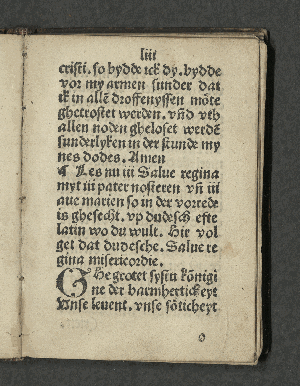 liii
cristi. so bydde ick dy. bydde
vor my armen sunder dat
ik in allē droffenyssen mōte
ghetrostet werden. vñd vth
allen noden gheloset werdē
sunderlyken in der stunde my
nes dodes. Amen
¶ Les nu iii Salue regina
myt iii pater nosteren vñ iii
aue marien so in der vorrede
is ghesecht. vp dudesch efte
latin wo du wult. Hir vol
get dat dudesche. Salue re
gina misericordie.
GHegrotet systu kōnigi
ne der barmherticheyt
Vnse leuent. vnse sōticheyt
o